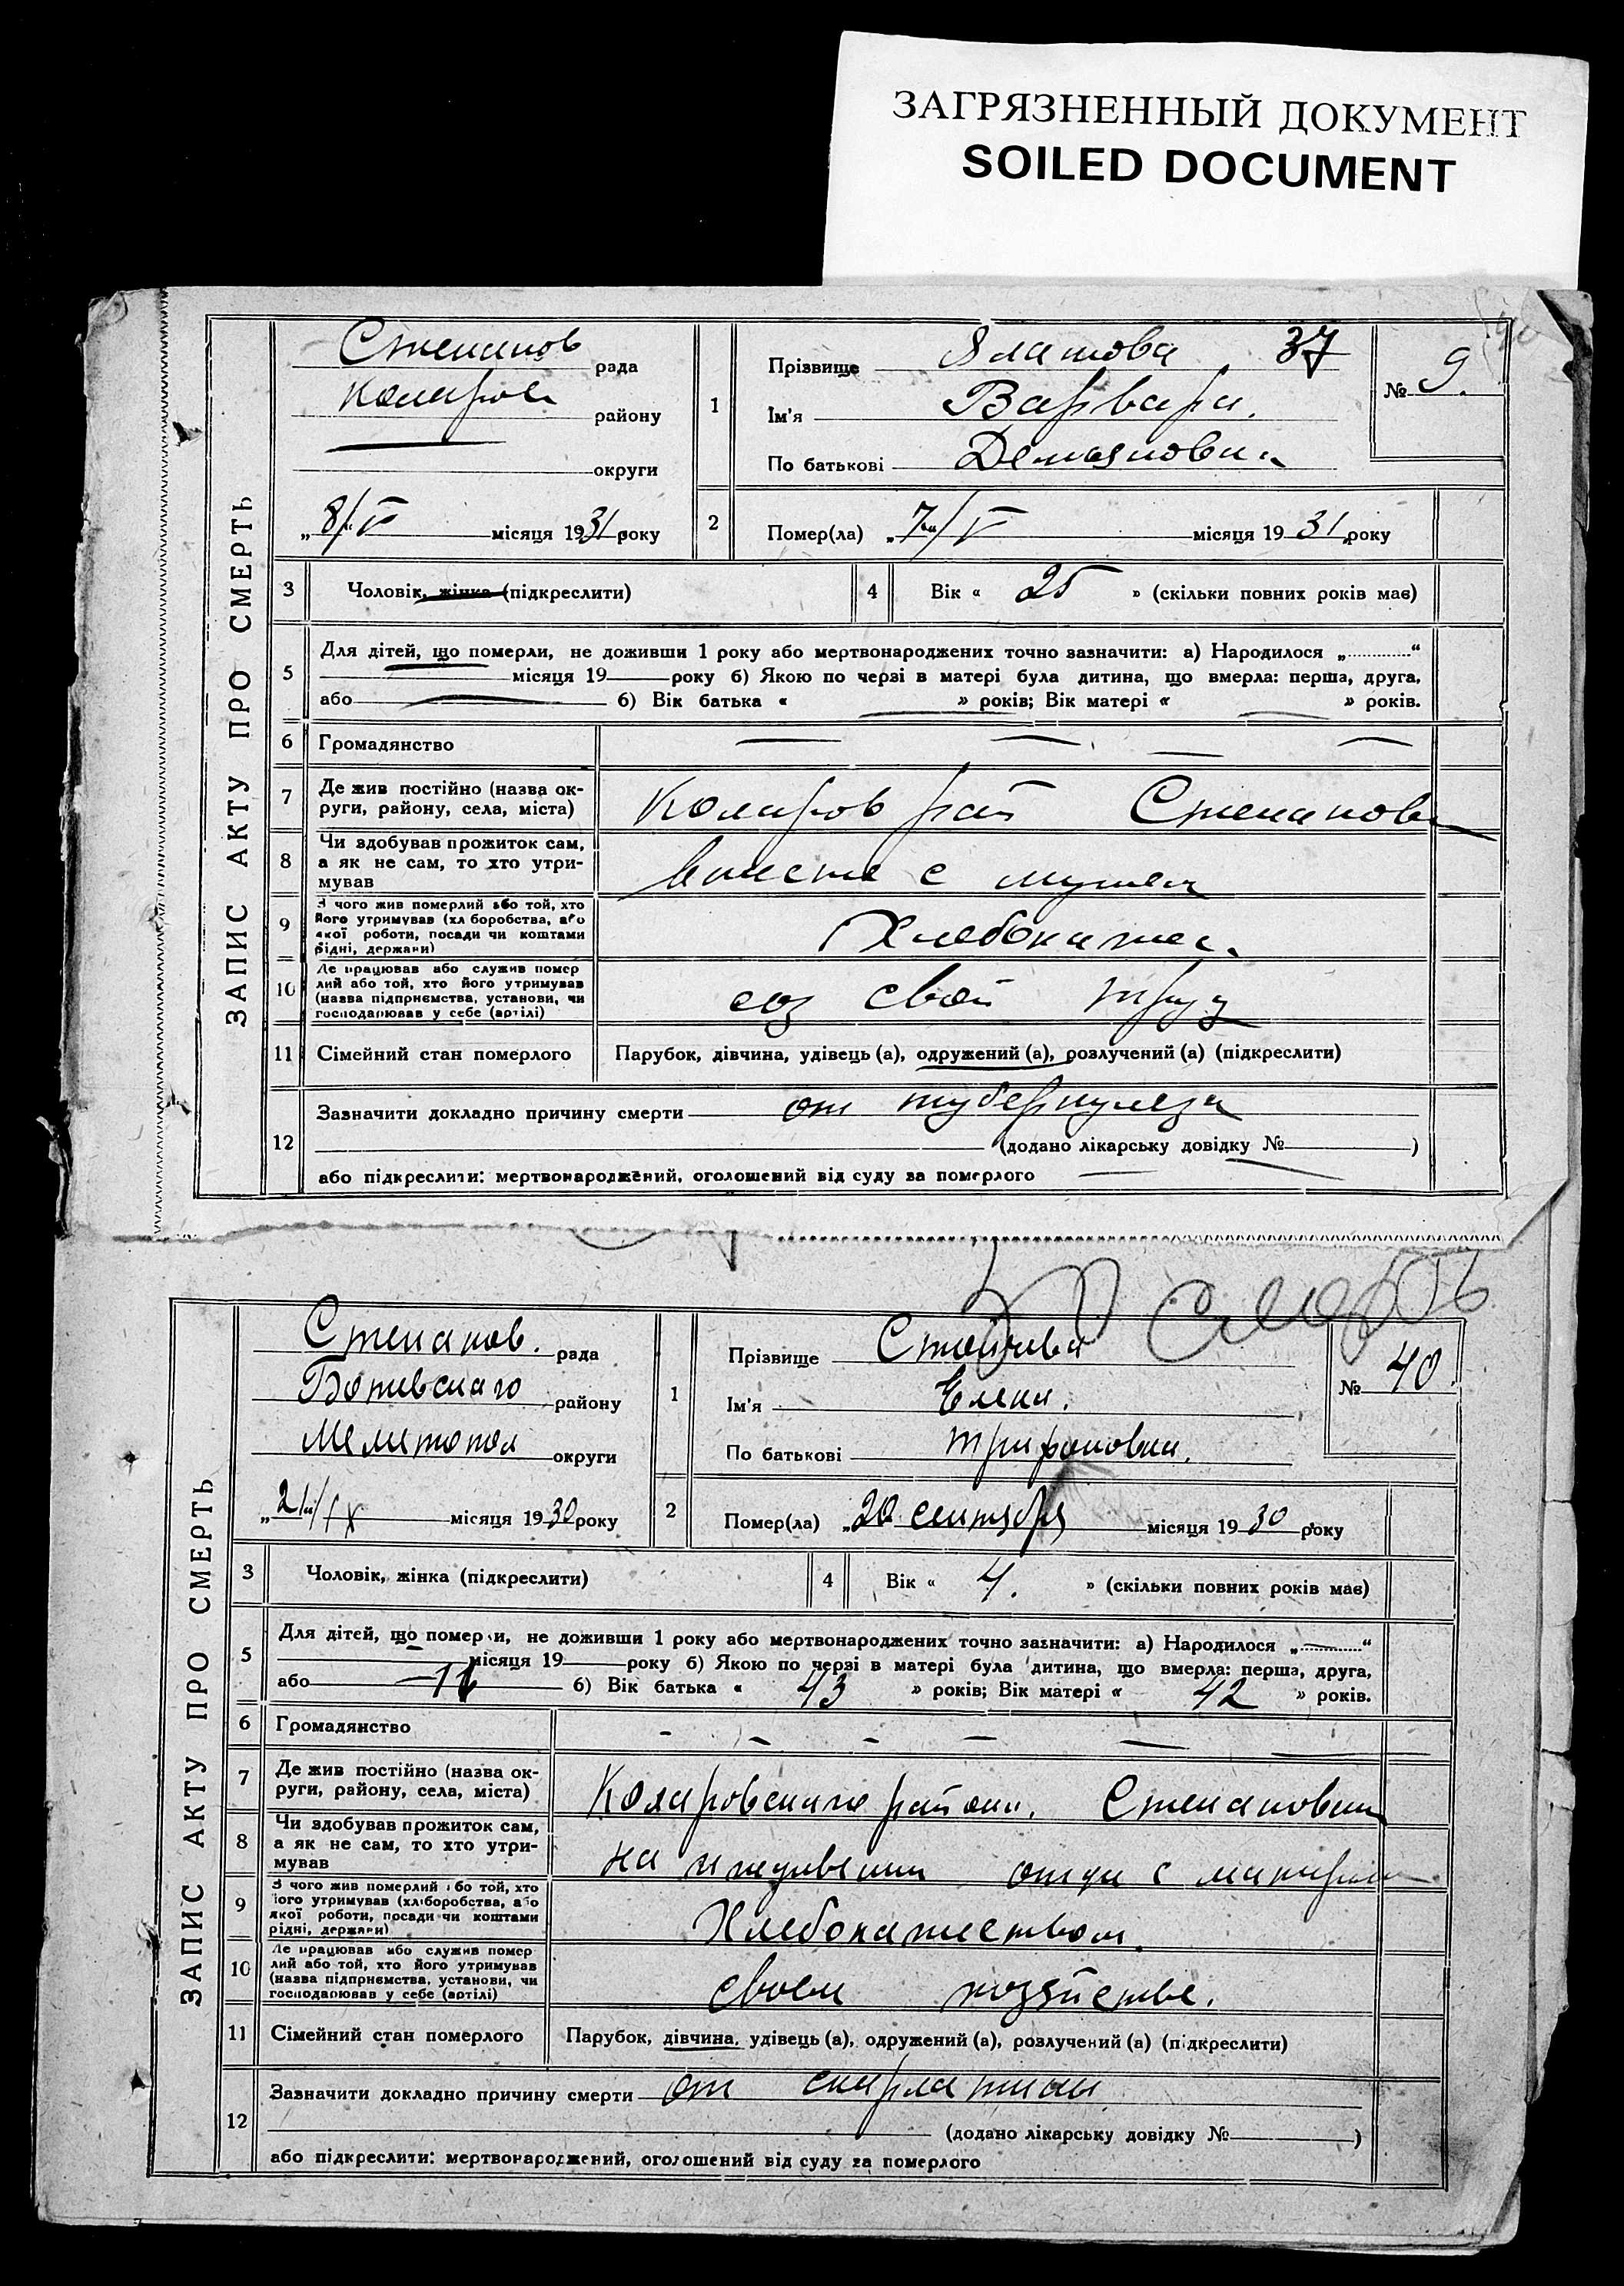 ЗАГРЯЗНЕННЫЙ ДОКУМЕНТ
SOILED DOCUMENT
ЗАПИС АКТУ ПРО СМЕРТЬ
Степанов рада
Коларов району
округи
„8/V місяця 1931 року
1
Прізвище Златова 37
Ім'я Варвара.
По батькові Демяновна
№ 9.
2 Помер(ла) „7/V місяця 1931 року
3 Чоловік, жінка (підкреслити)
4 Вік « 25 » (скільки повних років має)
5 Для дітей, що померли, не доживши 1 року або мертвонароджених точно зазначити: а) Народилося „ “
місяця 19 року б) Якою по черзі в матері була дитина, що вмерла: перша, друга,
або б) Вік батька « » років; Вік матері « » років.
6 Громадянство
7 Де жив постійно (назва ок-
руги, району, села, міста) Коларов рай Степановк
8 Чи здобував прожиток сам,
а як не сам, то хто утри-
мував вместе с мужем
9 З чого жив померлий або той, хто
його утримував (хліборобства, або
якої роботи, посади чи коштами
рідні, держави)
10 Де працював або служив помер
лий або той, хто його утримував
(назва підприємства, установи, чи
господарював у себе (артілі) соз свой труд
11 Сімейний стан померлого Парубок, дівчина, удівець (а), одружений (а), розлучений (а) (підкреслити)
12 Зазначити докладно причину смерти от туберкулеза
(додано лікарську довідку № )
або підкреслити: мертвонароджений, оголошений від суду за померлого
смерть
ЗАПИС АКТУ ПРО СМЕРТЬ
Степанов. рада
Ботевскаго району
Мелитопол округи
„21/IX місяця 1930 року
1
Прізвище Стойчева
Ім'я Елена.
По батькові Трифоновна.
№ 40.
2 Помер(ла) „20 сентября місяця 1930 року
3 Чоловік, жінка (підкреслити)
4 Вік « 4. » (скільки повних років має)
5 Для дітей, що померли, не доживши 1 року або мертвонароджених точно зазначити: а) Народилося „ “
місяця 19 року б) Якою по черзі в матері була дитина, що вмерла: перша, друга,
або б) Вік батька « 43 » років; Вік матері « 42 » років.
6 Громадянство
7 Де жив постійно (назва ок-
руги, району, села, міста) Коларовскаго района. Степановка
8 Чи здобував прожиток сам,
а як не сам, то хто утри-
мував на иждивении отца с матерью
9 З чого жив померлий або той, хто
його утримував (хліборобства, або
якої роботи, посади чи коштами
рідні, держави) Хлебопашеством.
10 Де працював або служив помер
лий або той, хто його утримував
(назва підприємства, установи, чи
господарював у себе (артілі) своем хозяйстве.
11 Сімейний стан померлого Парубок, дівчина, удівець (а), одружений (а), розлучений (а) (підкреслити)
12 Зазначити докладно причину смерти от скарлатины
(додано лікарську довідку № )
або підкреслити: мертвонароджений, оголошений від суду за померлого